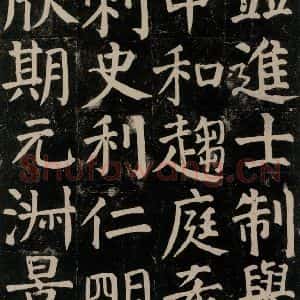 進士制與
和趨庭
刺史利仁明
期元洲景
Shufawang.CN